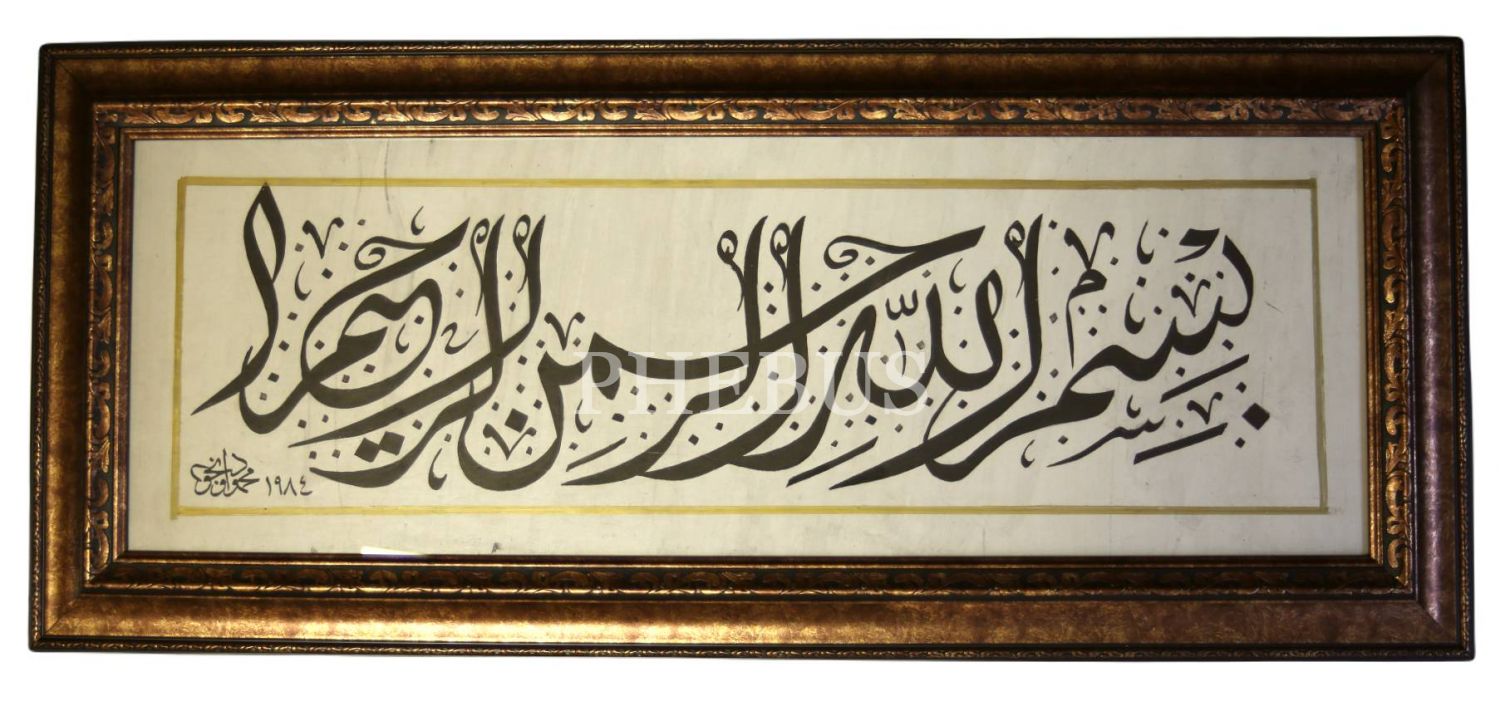 بسم الله الرحمن الرحيم
محمود
١٩٨٤
PHEBUS